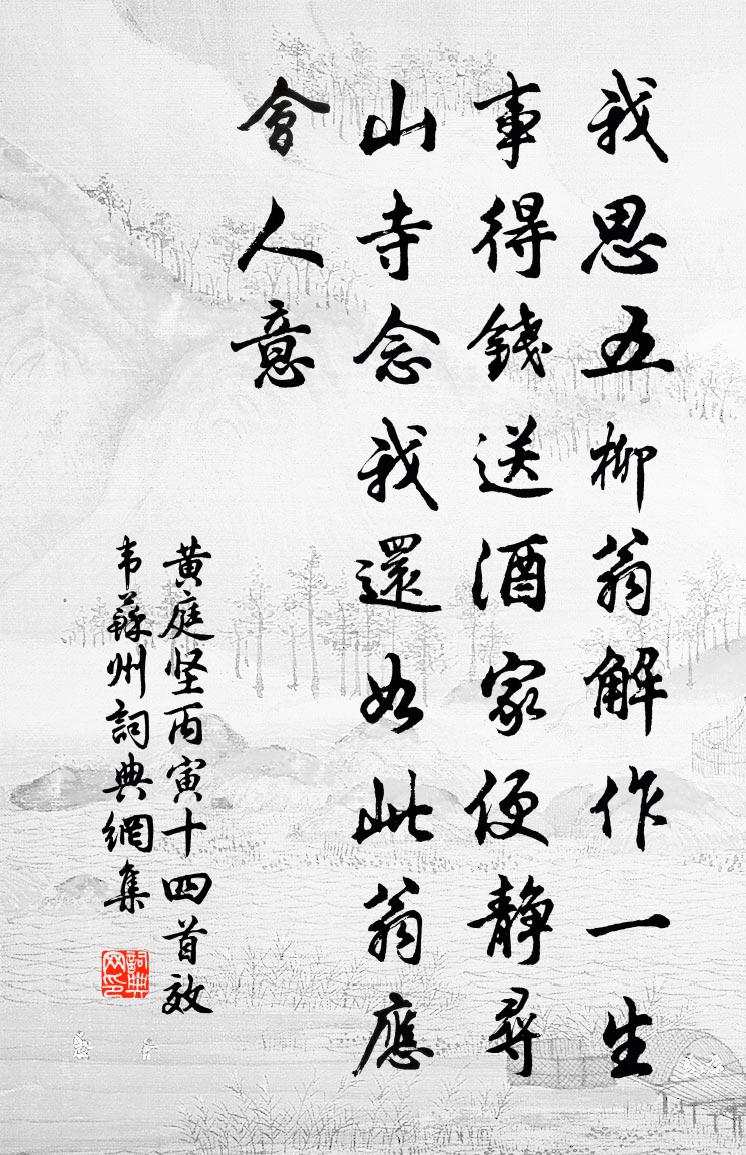 我思五柳翁解作一生
事得錢送酒家便静尋
山寺念我還如此翁應
會人意
黄庭坚丙寅十四首效
韦蘇州詞典網集
詞典网印